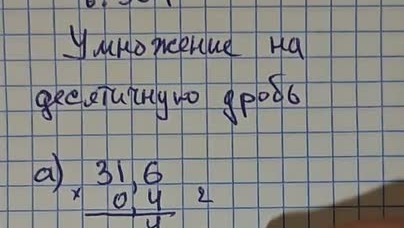 Умножение на
десятичную дробь
а) 31,6
× 0,4 2
4